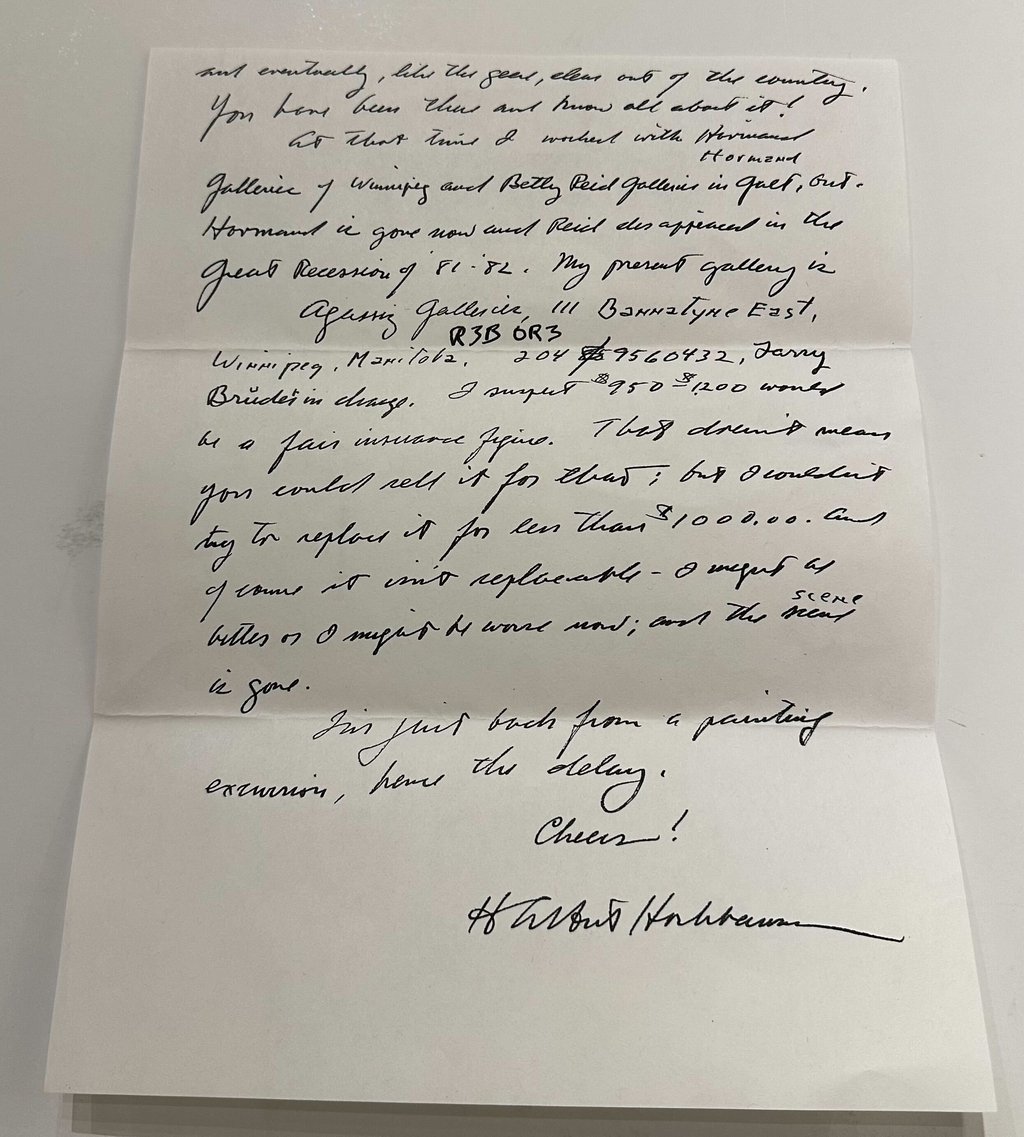 and eventually, like the geese, clear out of the country.
You have been there and know all about it!
At that time I worked with Hormand
Hormand
Galleries of Winnipeg and Betty Reid Galleries in Galt, but
Hormand is gone now and Reid disappeared in the
Great Recession of '81-'82. My present gallery is
Agassiz Galleries, 111 Bannatyne East,
R3B 0R3
Winnipeg, Manitoba. 204 9560432,
in charge. I suspect $950-$1200 would
be a fair insurance figure. That doesn't mean
you could sell it for that; but I wouldn't
try to replace it for less than $1000.00. And
of course it isn't replaceable - I might be
better or I might be worse now; and the scene
scene
is gone.
I'm just back from a painting
excursion, hence the delay.
Cheers!
H Albert Hochbaum